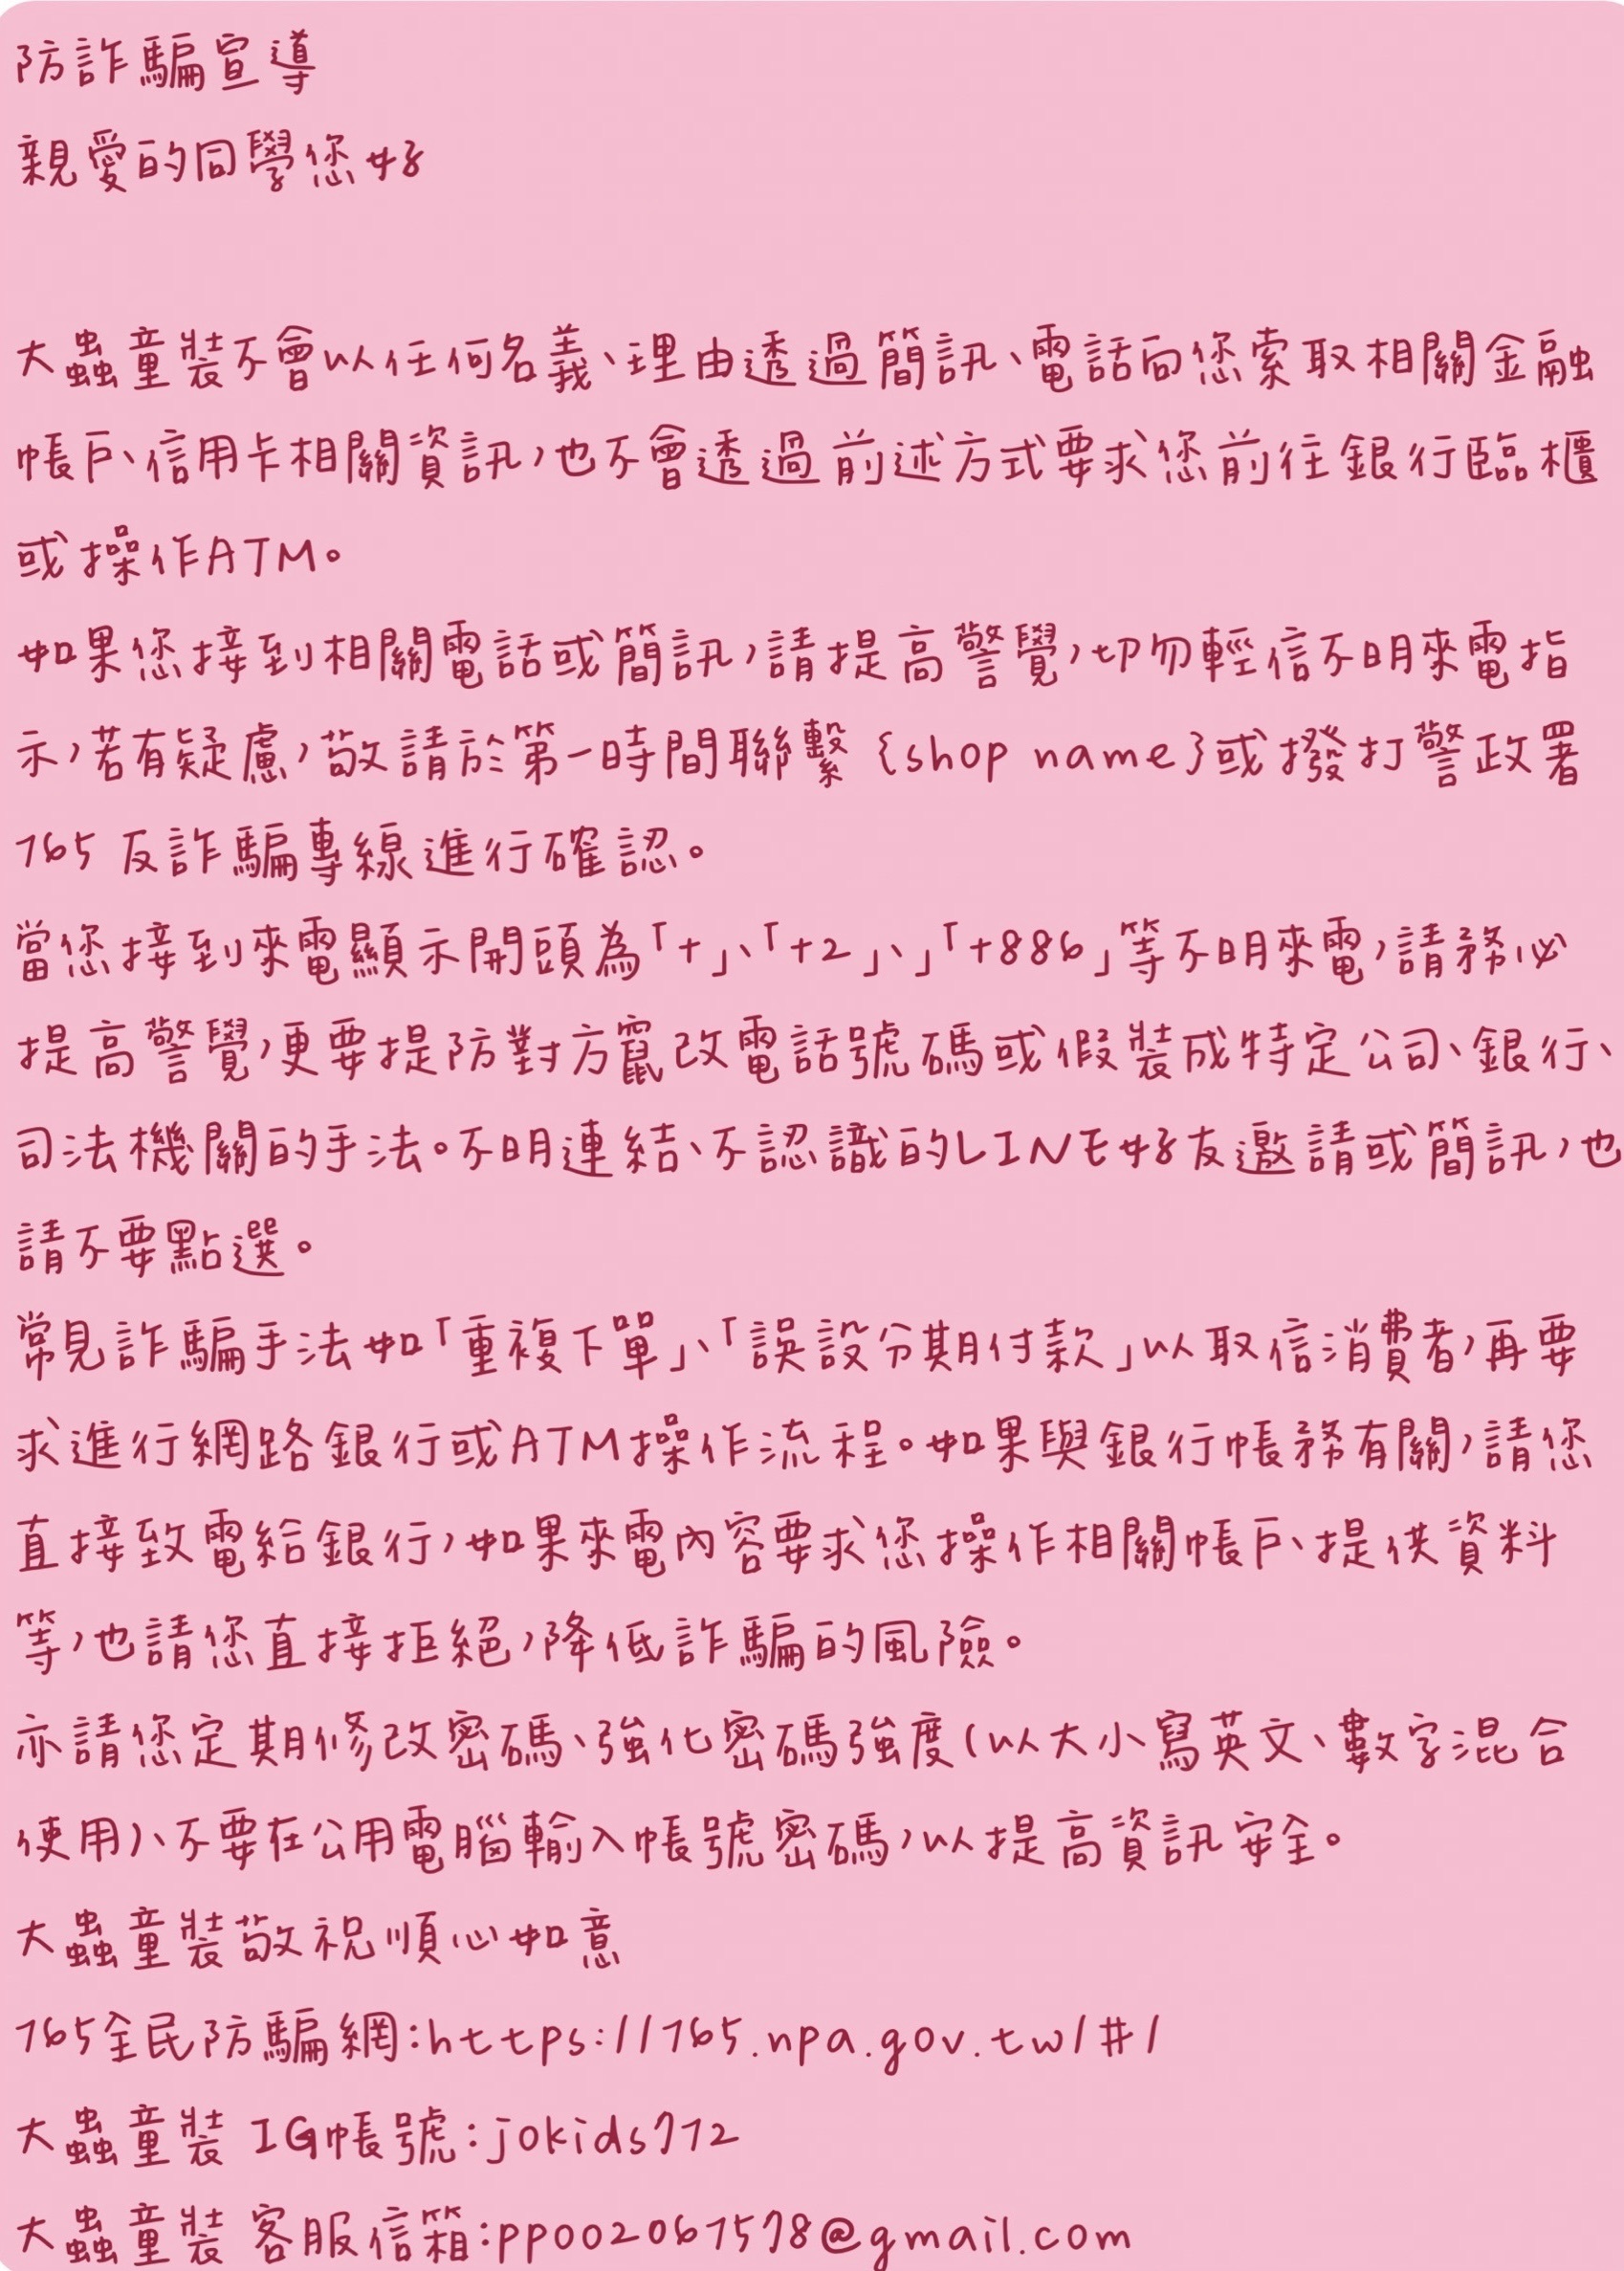 防詐騙宣導
親愛的同學您好
大蟲童裝不會以任何名義、理由透過簡訊、電話向您索取相關金融
帳戶、信用卡相關資訊,也不會透過前述方式要求您前往銀行臨櫃
或操作ATM。
如果您接到相關電話或簡訊,請提高警覺,切勿輕信不明來電指
示,若有疑慮,敬請於第一時間聯繫 {shop name}或撥打警政署
165 反詐騙專線進行確認。
當您接到來電顯示開頭為「+」、「+2 」、」「+886」等不明來電,請務必
提高警覺,更要提防對方竄改電話號碼或假裝成特定公司、銀行、
司法機關的手法。不明連結、不認識的LINE好友邀請或簡訊,也
請不要點選。
常見詐騙手法如「重複下單」、「誤設分期付款」以取信消費者,再要
求進行網路銀行或ATM操作流程。如果與銀行帳務有關,請您
直接致電給銀行,如果來電內容要求您操作相關帳戶、提供資料
等,也請您直接拒絕,降低詐騙的風險。
亦請您定期修改密碼、強化密碼強度(以大小寫英文、數字混合
使用)、不要在公用電腦輸入帳號密碼,以提高資訊安全。
大蟲童裝敬祝順心如意
165全民防騙網:https://165.npa.gov.tw/#/
大蟲童裝 IG帳號:jokids712
大蟲童裝 客服信箱:pp002061578@gmail.com